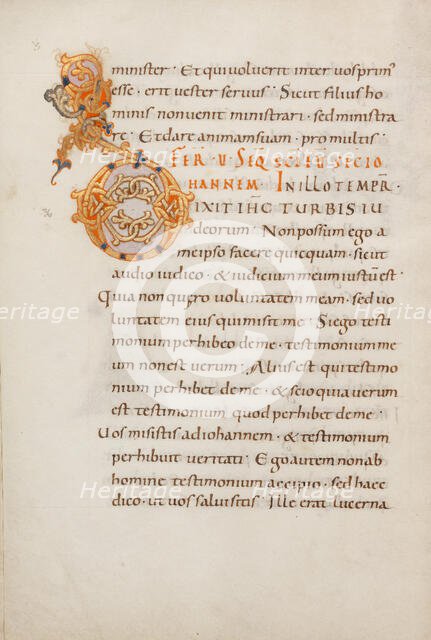 minister · Et qui voluerit inter vos prim'
esse · erit vester servus · Sicut filius ho
minis non venit ministrari · sed ministra
re · Et dare animam suam · pro multis ·
FER · U · SEQ SCI EU SEC IO
HANNEM · IN ILLO TEMPR ·
DIXIT IHC TURBIS IU
deorum · Non possum ego a
me ipso facere quicquam · sicut
audio iudico · & iudicium meum iustū est ·
Quia non quęro voluntatem meam · sed vo
luntatem eius qui misit me · Si ego testi
monium perhibeo de me · testimonium me
um non est verum · Alius est qui testimo
nium perhibet de me · & scio quia verum
est testimonium quod perhibet de me ·
Uos misistis ad iohannem · & testimonium
perhibuit veritati · Ego autem non ab
homine testimonium accipio · sed haec
dico · ut vos salvi sitis · Ille erat lucerna
Heritage
Heritage
Heritage
Heritage
Heritage
Images
Images
Images
Images
Images